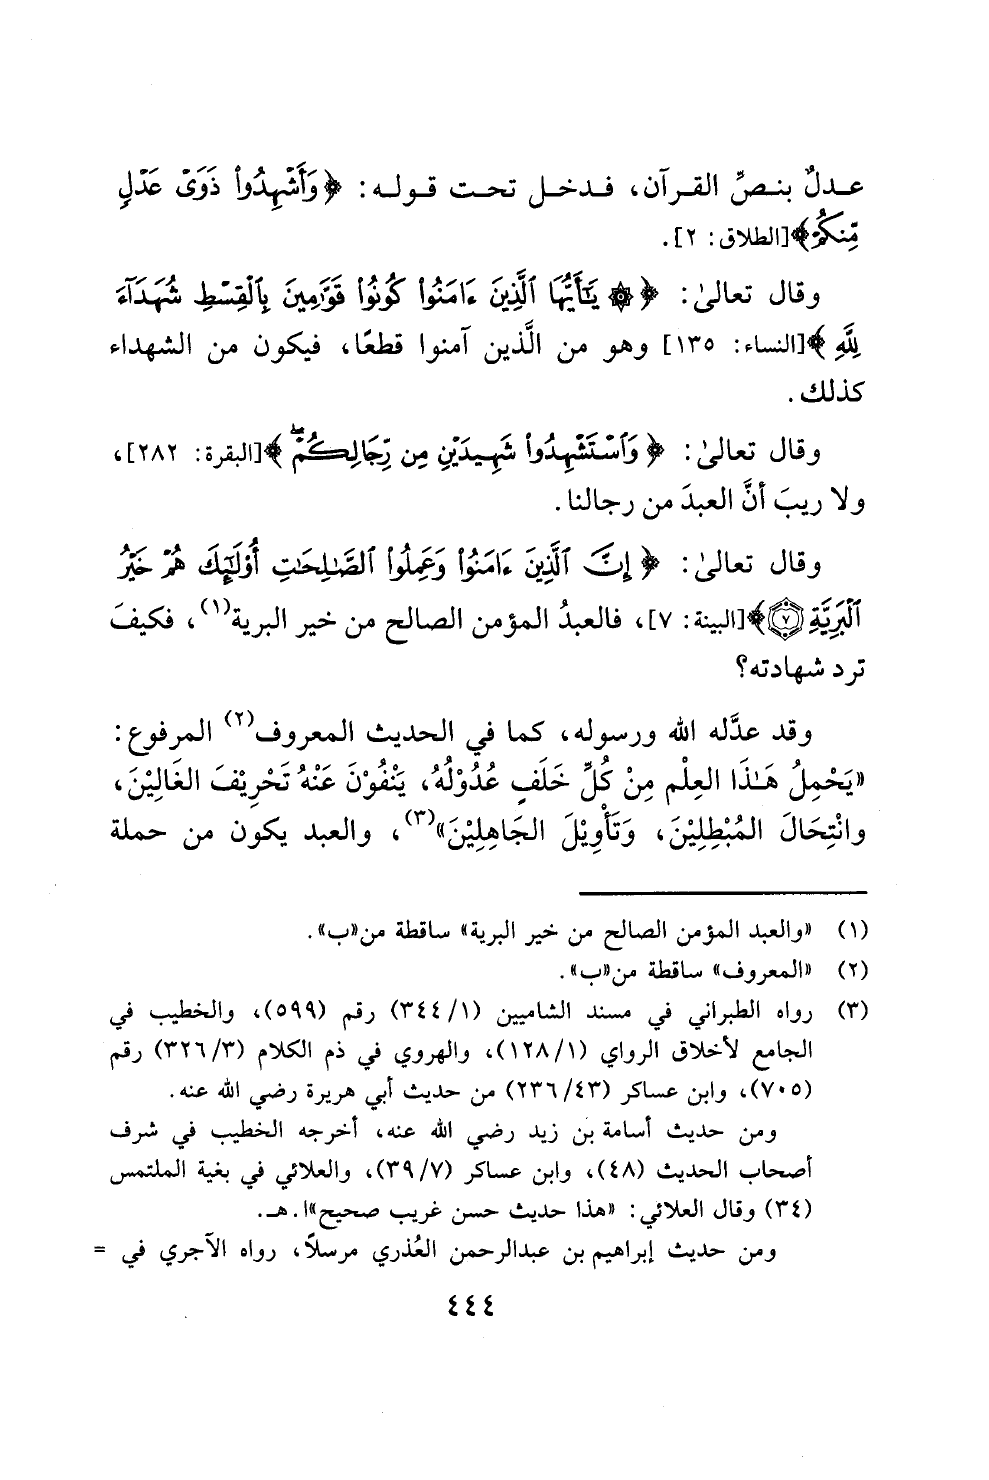 عـدلٌ بنـصِّ القـرآن، فـدخـل تحـت قـولـه: ﴿وَأَشْهِدُواْ ذَوَىْ عَدْلٍ
مِّنكُمْ﴾[الطلاق: ٢].
وقال تعالىٰ: ﴿۞ يَـٰٓأَيُّهَا ٱلَّذِينَ ءَامَنُواْ كُونُواْ قَوَّٰمِينَ بِٱلْقِسْطِ شُهَدَآءَ
لِلَّهِ﴾[النساء: ١٣٥] وهو من الَّذين آمنوا قطعًا، فيكون من الشهداء
كذلك.
وقال تعالىٰ: ﴿وَٱسْتَشْهِدُواْ شَهِيدَيْنِ مِن رِّجَالِكُمْۖ﴾[البقرة: ٢٨٢]،
ولا ريبَ أنَّ العبدَ من رجالنا.
وقال تعالىٰ: ﴿إِنَّ ٱلَّذِينَ ءَامَنُواْ وَعَمِلُواْ ٱلصَّـٰلِحَـٰتِ أُوْلَـٰٓئِكَ هُمْ خَيْرُ
ٱلْبَرِيَّةِ ٧﴾[البينة: ٧]، فالعبدُ المؤمن الصالح من خير البرية(١)، فكيفَ
ترد شهادته؟
وقد عدَّله الله ورسوله، كما في الحديث المعروف(٢) المرفوع:
«يَحْمِلُ هَـٰذَا العِلْم مِنْ كُلِّ خَلَفٍ عُدُوْلُهُ، يَنْفُوْنَ عَنْهُ تَحْرِيْفَ الغَالِيْنَ،
وانْتِحَالَ المُبْطِلِيْنَ، وَتَأْوِيْلَ الجَاهِلِيْنَ»(٣)، والعبد يكون من حملة
(١) «والعبد المؤمن الصالح من خير البرية» ساقطة من«ب».
(٢) «المعروف» ساقطة من«ب».
(٣) رواه الطبراني في مسند الشاميين (٣٤٤/١) رقم (٥٩٩)، والخطيب في
الجامع لأخلاق الرواي (١٢٨/١)، والهروي في ذم الكلام (٣٢٦/٣) رقم
(٧٠٥)، وابن عساكر (٢٣٦/٤٣) من حديث أبي هريرة رضي الله عنه.
ومن حديث أسامة بن زيد رضي الله عنه، أخرجه الخطيب في شرف
أصحاب الحديث (٤٨)، وابن عساكر (٣٩/٧)، والعلائي في بغية الملتمس
(٣٤) وقال العلائي: «هذا حديث حسن غريب صحيح»ا.هـ.
ومن حديث إبراهيم بن عبدالرحمن العُذري مرسلاً، رواه الآجري في =
٤٤٤